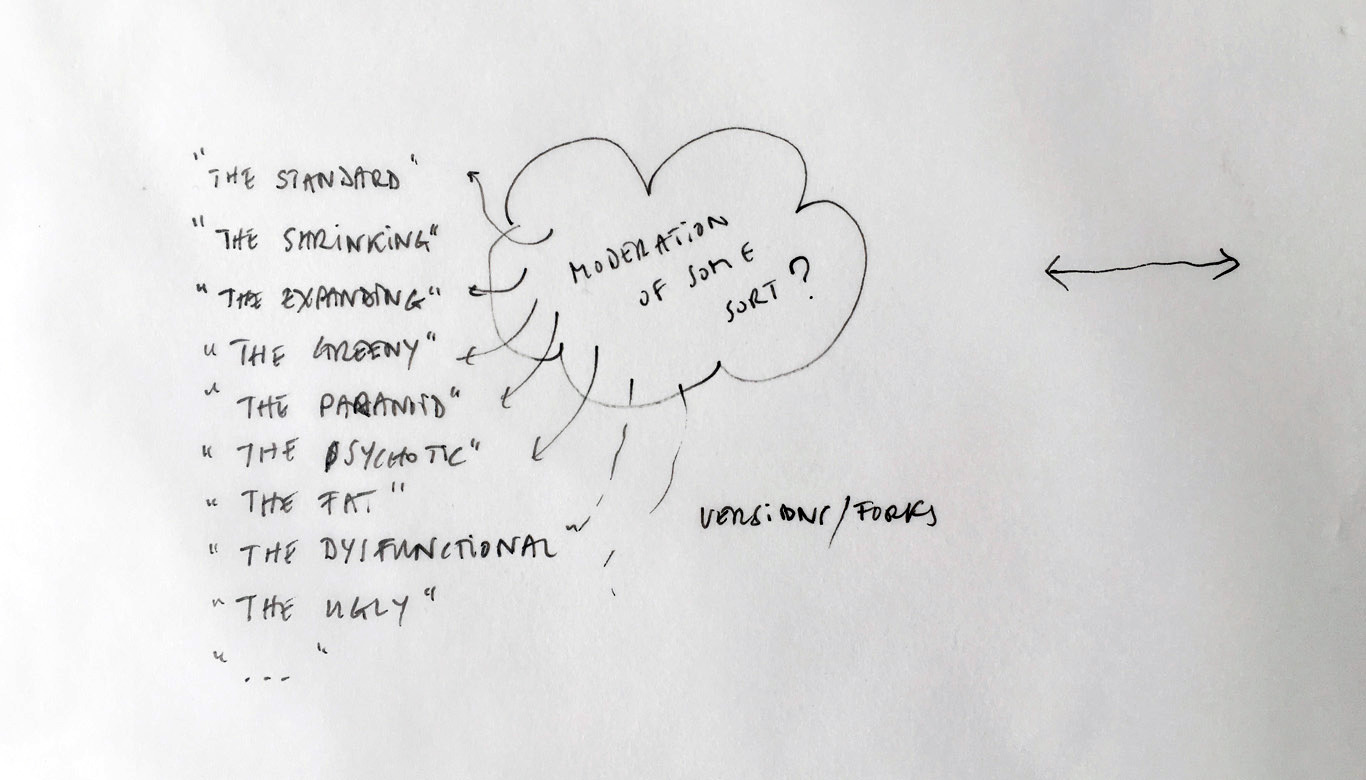 "THE STANDARD"
"THE SHRINKING"
"THE EXPANDING"
"THE GREENY"
"THE PARANOID"
"THE PSYCHOTIC"
"THE FAT"
"THE DYSFUNCTIONAL"
"THE UGLY"
"..."
MODERATION
OF SOME
SORT?
VERSIONS/FORKS